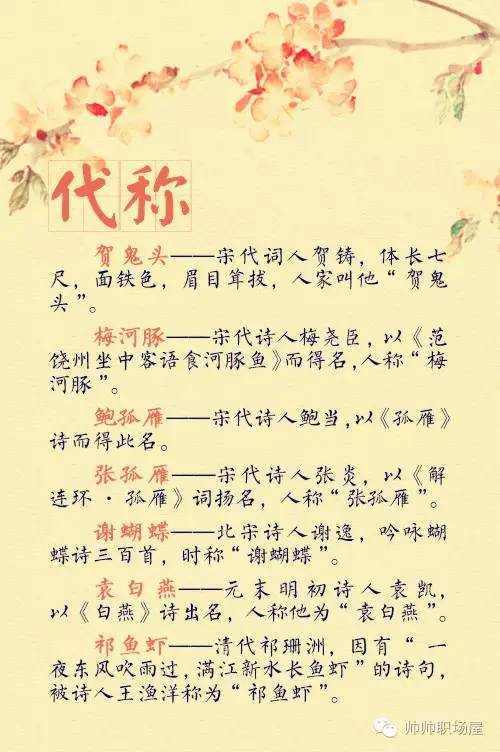 代称
贺鬼头——宋代词人贺铸，体长七
尺，面铁色，眉目耸拔，人家叫他“贺鬼
头”。
梅河豚——宋代诗人梅尧臣，以《范
饶州坐中客语食河豚鱼》而得名，人称“梅
河豚”。
鲍孤雁——宋代诗人鲍当，以《孤雁》
诗而得此名。
张孤雁——宋代诗人张炎，以《解
连环·孤雁》词扬名，人称“张孤雁”。
谢蝴蝶——北宋诗人谢逸，吟咏蝴
蝶诗三百首，时称“谢蝴蝶”。
袁白燕——元末明初诗人袁凯，
以《白燕》诗出名，人称他为“袁白燕”。
祁鱼虾——清代祁珊洲，因有“一
夜东风吹雨过，满江新水长鱼虾”的诗句，
被诗人王渔洋称为“祁鱼虾”。
帅帅职场屋